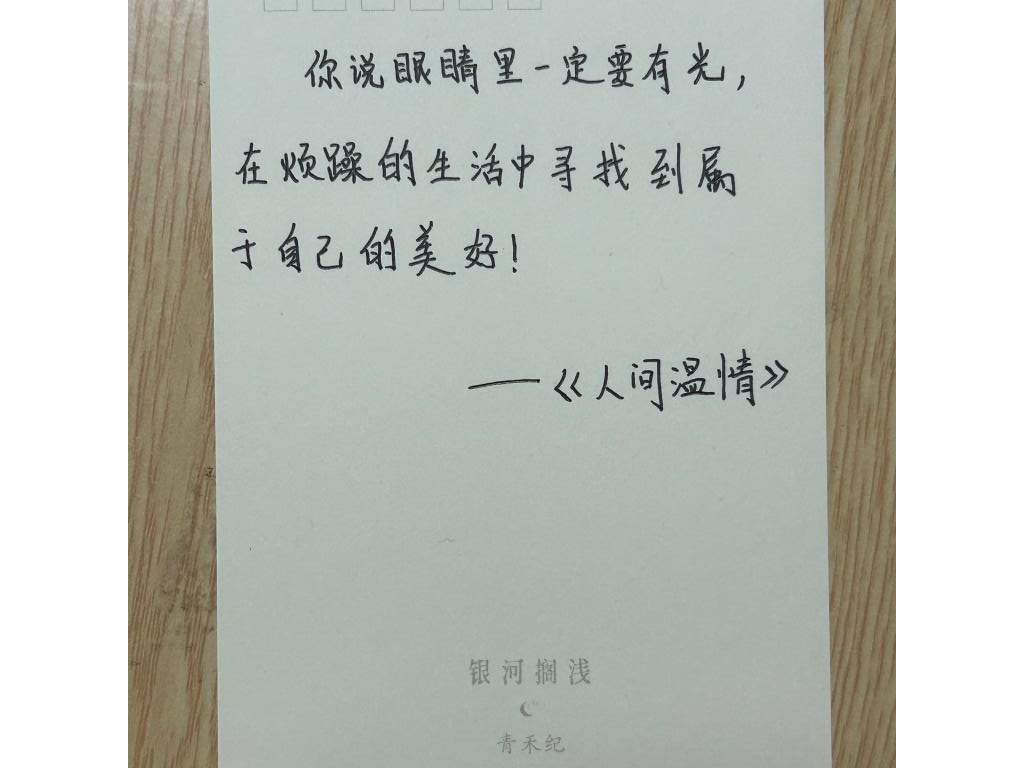 你说眼睛里一定要有光,
在烦躁的生活中寻找到属
于自己的美好!
——《人间温情》
银河搁浅
青禾纪